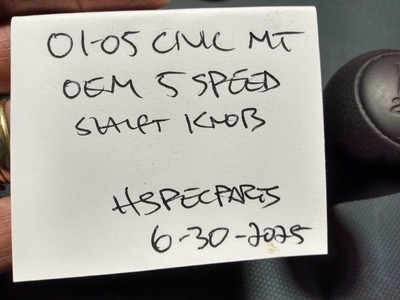 01-05 CIVIC MT
OEM 5 SPEED
SHIFT KNOB
HSPECPARTS
6-30-2025
2